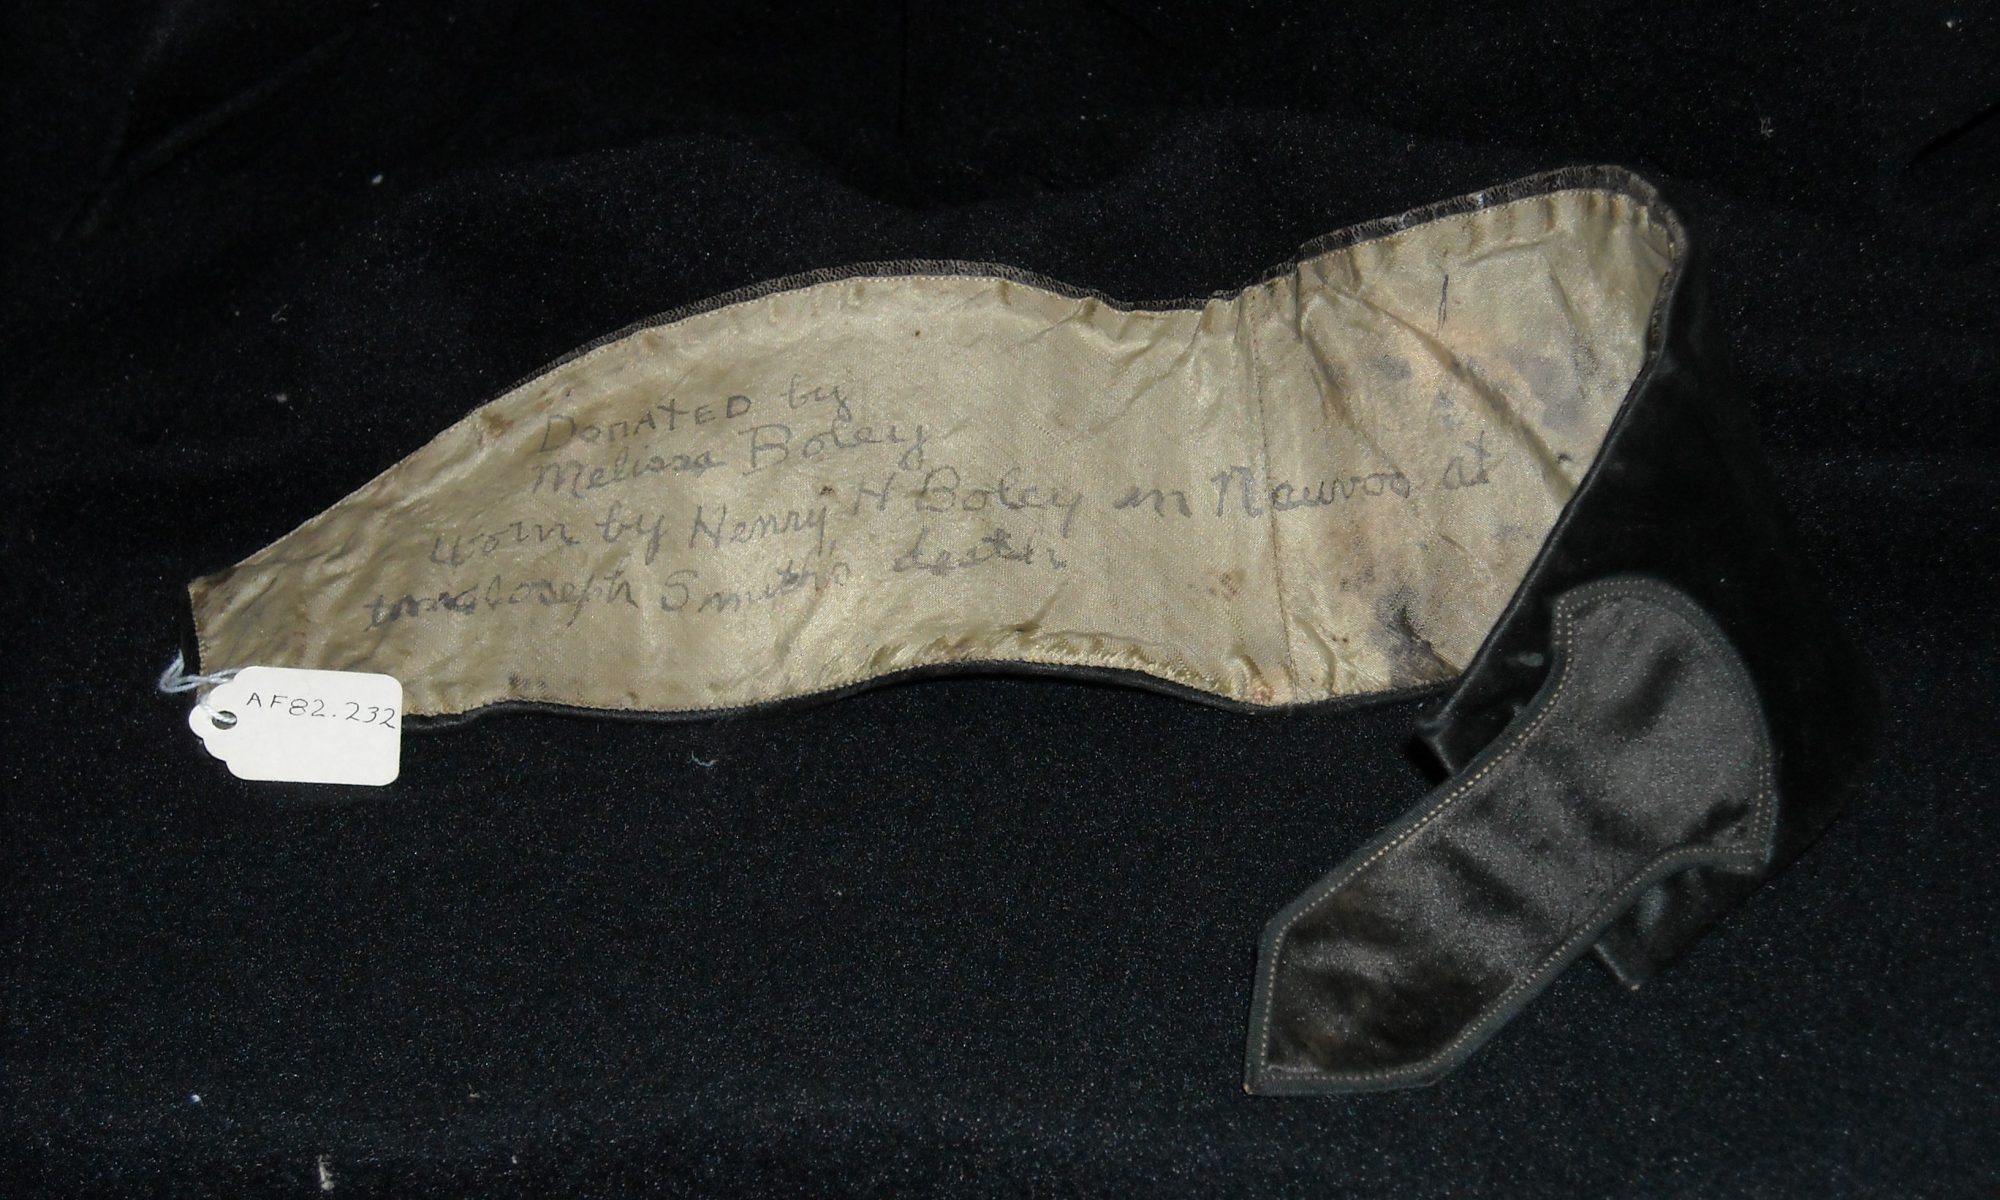 Donated by
Melissa Boley
worn by Henry H Boley in Nauvoo at
time Joseph Smith's death
AF82.232